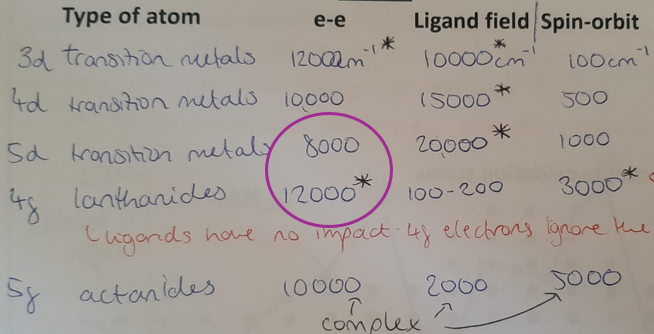 Type of atom e-e Ligand field Spin-orbit
3d transition metals 12000cm⁻¹* 10000*cm⁻¹ 100cm⁻¹
4d transition metals 10,000 15000* 500
5d transition metals 8000 20,000* 1000
4f lanthanides 12000* 100-200 3000*
ligands have no impact - 4f electrons ignore the
5f actanides 10000 2000 5000
complex